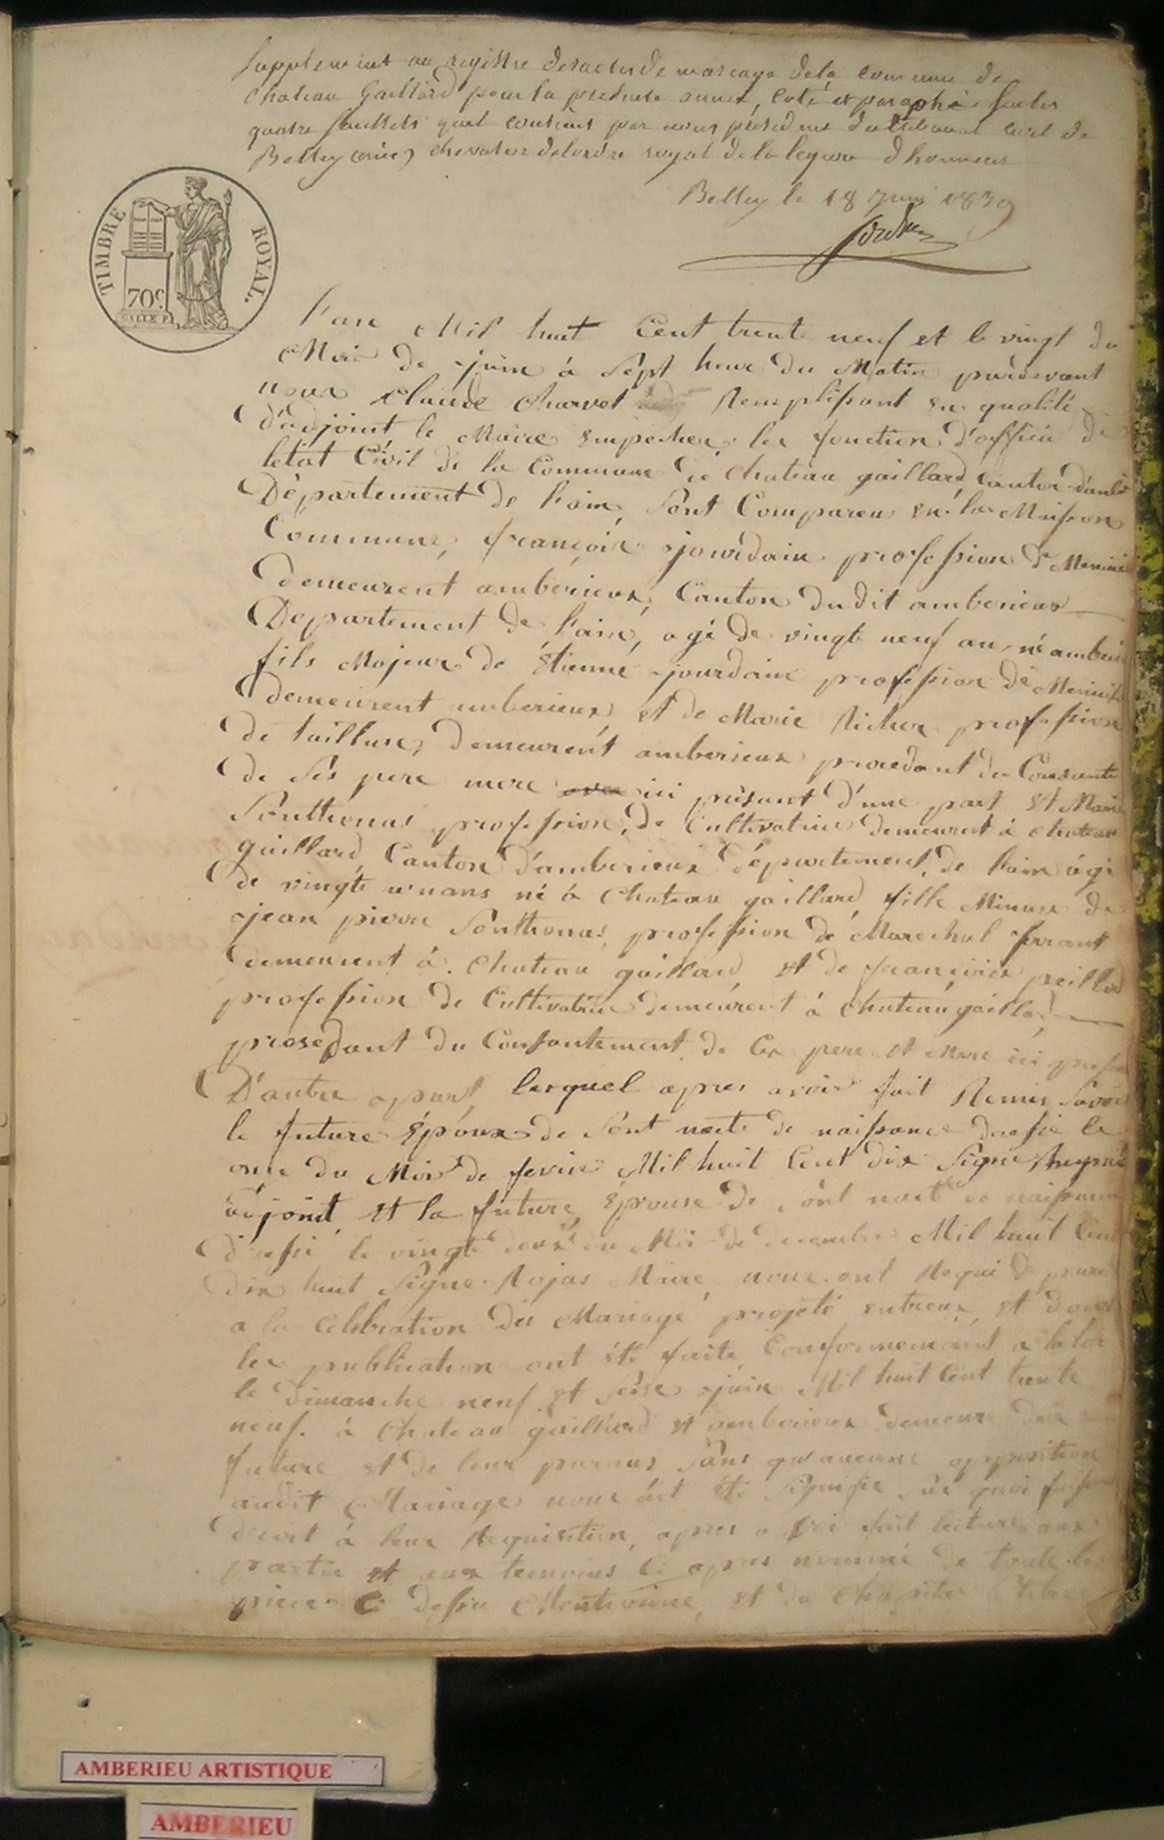 Supplement au registre des actes de mariage de la commune de
Chateau Gaillard pour la presente année, coté et paraphé
quatre feuillets par nous président du tribunal civil de
Belley (ain) chevalier de lordre royal de la legion dhonneur
Belley le 18 juin 1839
TIMBRE ROYAL.
70c
L'an Mil huit Cent trente neuf et le vingt du
Mois de juin à Sept heure du Matin pardevant
nous Claude Charvet Remplissant en qualité
d'adjoint le Maire empecher les fonction d'officie de
létat Civil de la Commune de Chateau gaillard canton
Département de l'ain, Sont Compareu en la Maison
Commune, françois jourdain profession de
demeurent amberieux, Canton dudit amberieux
Departement de l'ain, agé de vingt neuf an né
fils Majeur de Etienne jourdain profession de
demeurent amberieux et de Marie profession
de tailleuse, demeurent amberieux procedant du
de ses pere mere ici présant d'une part et Marie
Ponthonus profession de Cultivatrice demeurent à chateau
gaillard Canton d'amberieux département de l'ain âgé
de vingte ans né à Chateau gaillard fille Mineure de
jean pierre Ponthonus, profession de Marechal ferrant
demeurent à Chateau gaillard et de françoise
profession de Cultivatrice demeurent à Chateau gaillard
prosedant du Consantement de Ces pere et Mere ici
D'autre apart, lesquel apres avoir fait Remis
le future Epoux de Sont nacte de naissance dresse le
onze du Mois de fevrie Mil huit Cent dix Signe
adjoint, et la future Epouse de sont nacte de naissance
dressé le vingt deux du Mois de decembre Mil huit Cent
dix huit Signe Rojas Maire, nous ont Requi de
a la Celebration du Mariage projeté entreux et dont
les publication ont été faite Conformement a la loi
le dimanche neuf et seise juin Mil huit Cent trente
neuf à Chateau gaillard et amberieux demeure
future et de leur parans Sans qu'aucune opposition
audit Mariage nous ait été Signifie
droit à leur Requisition, apres avoir fait lecture aux
partie et aux temoins Ci apres nommé de toute les
piece Ci dessu Mentionné, et du Chapitre
AMBERIEU ARTISTIQUE
AMBERIEU